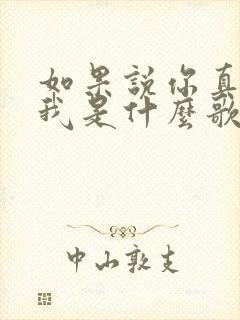 如果説你真
我是什麽歌
中山敦支